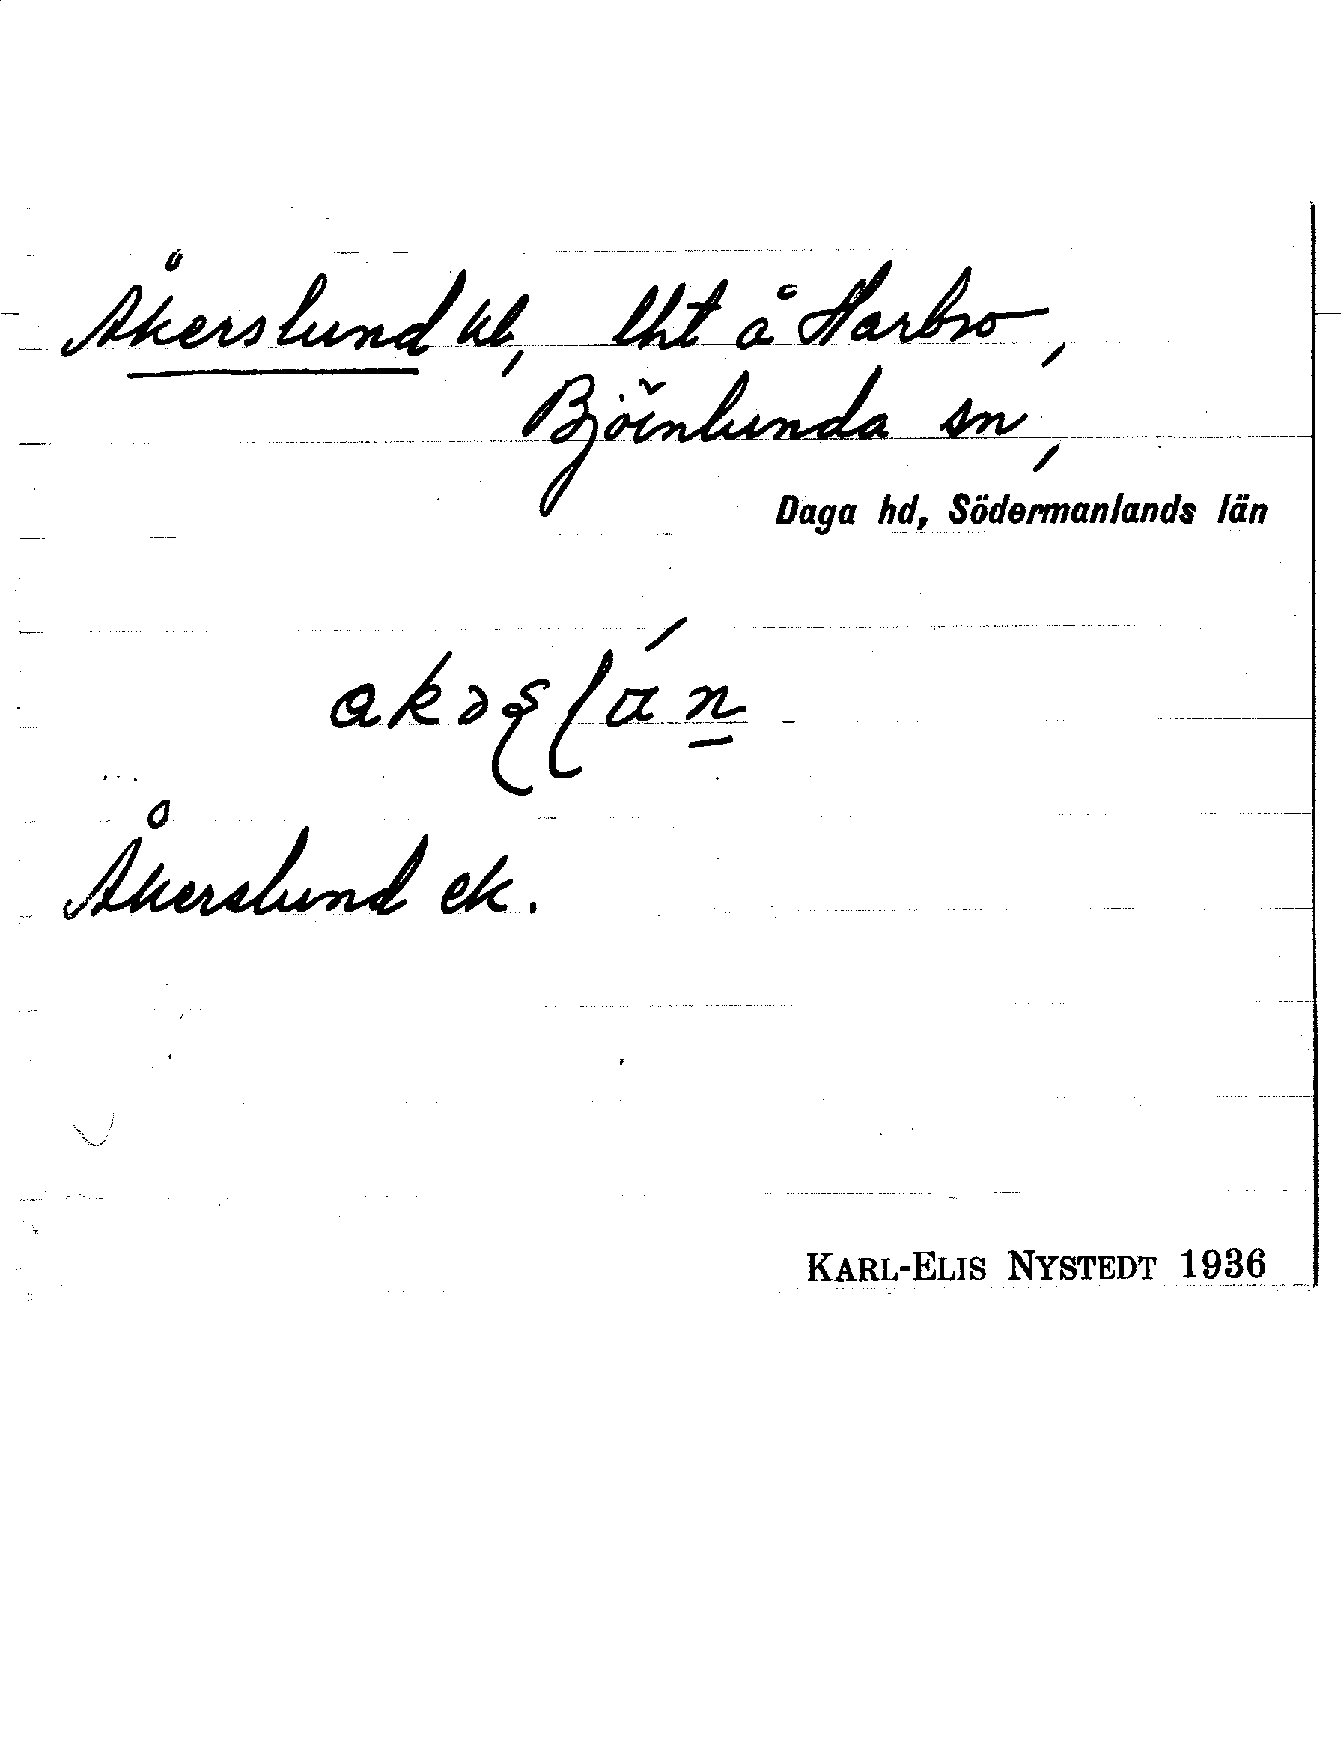 Åkerslund kl, lht å Harbro,
Björnlunda sn,
Daga hd, Södermanlands län
Åkerslund ek.
KARL-ELIS NYSTEDT 1936